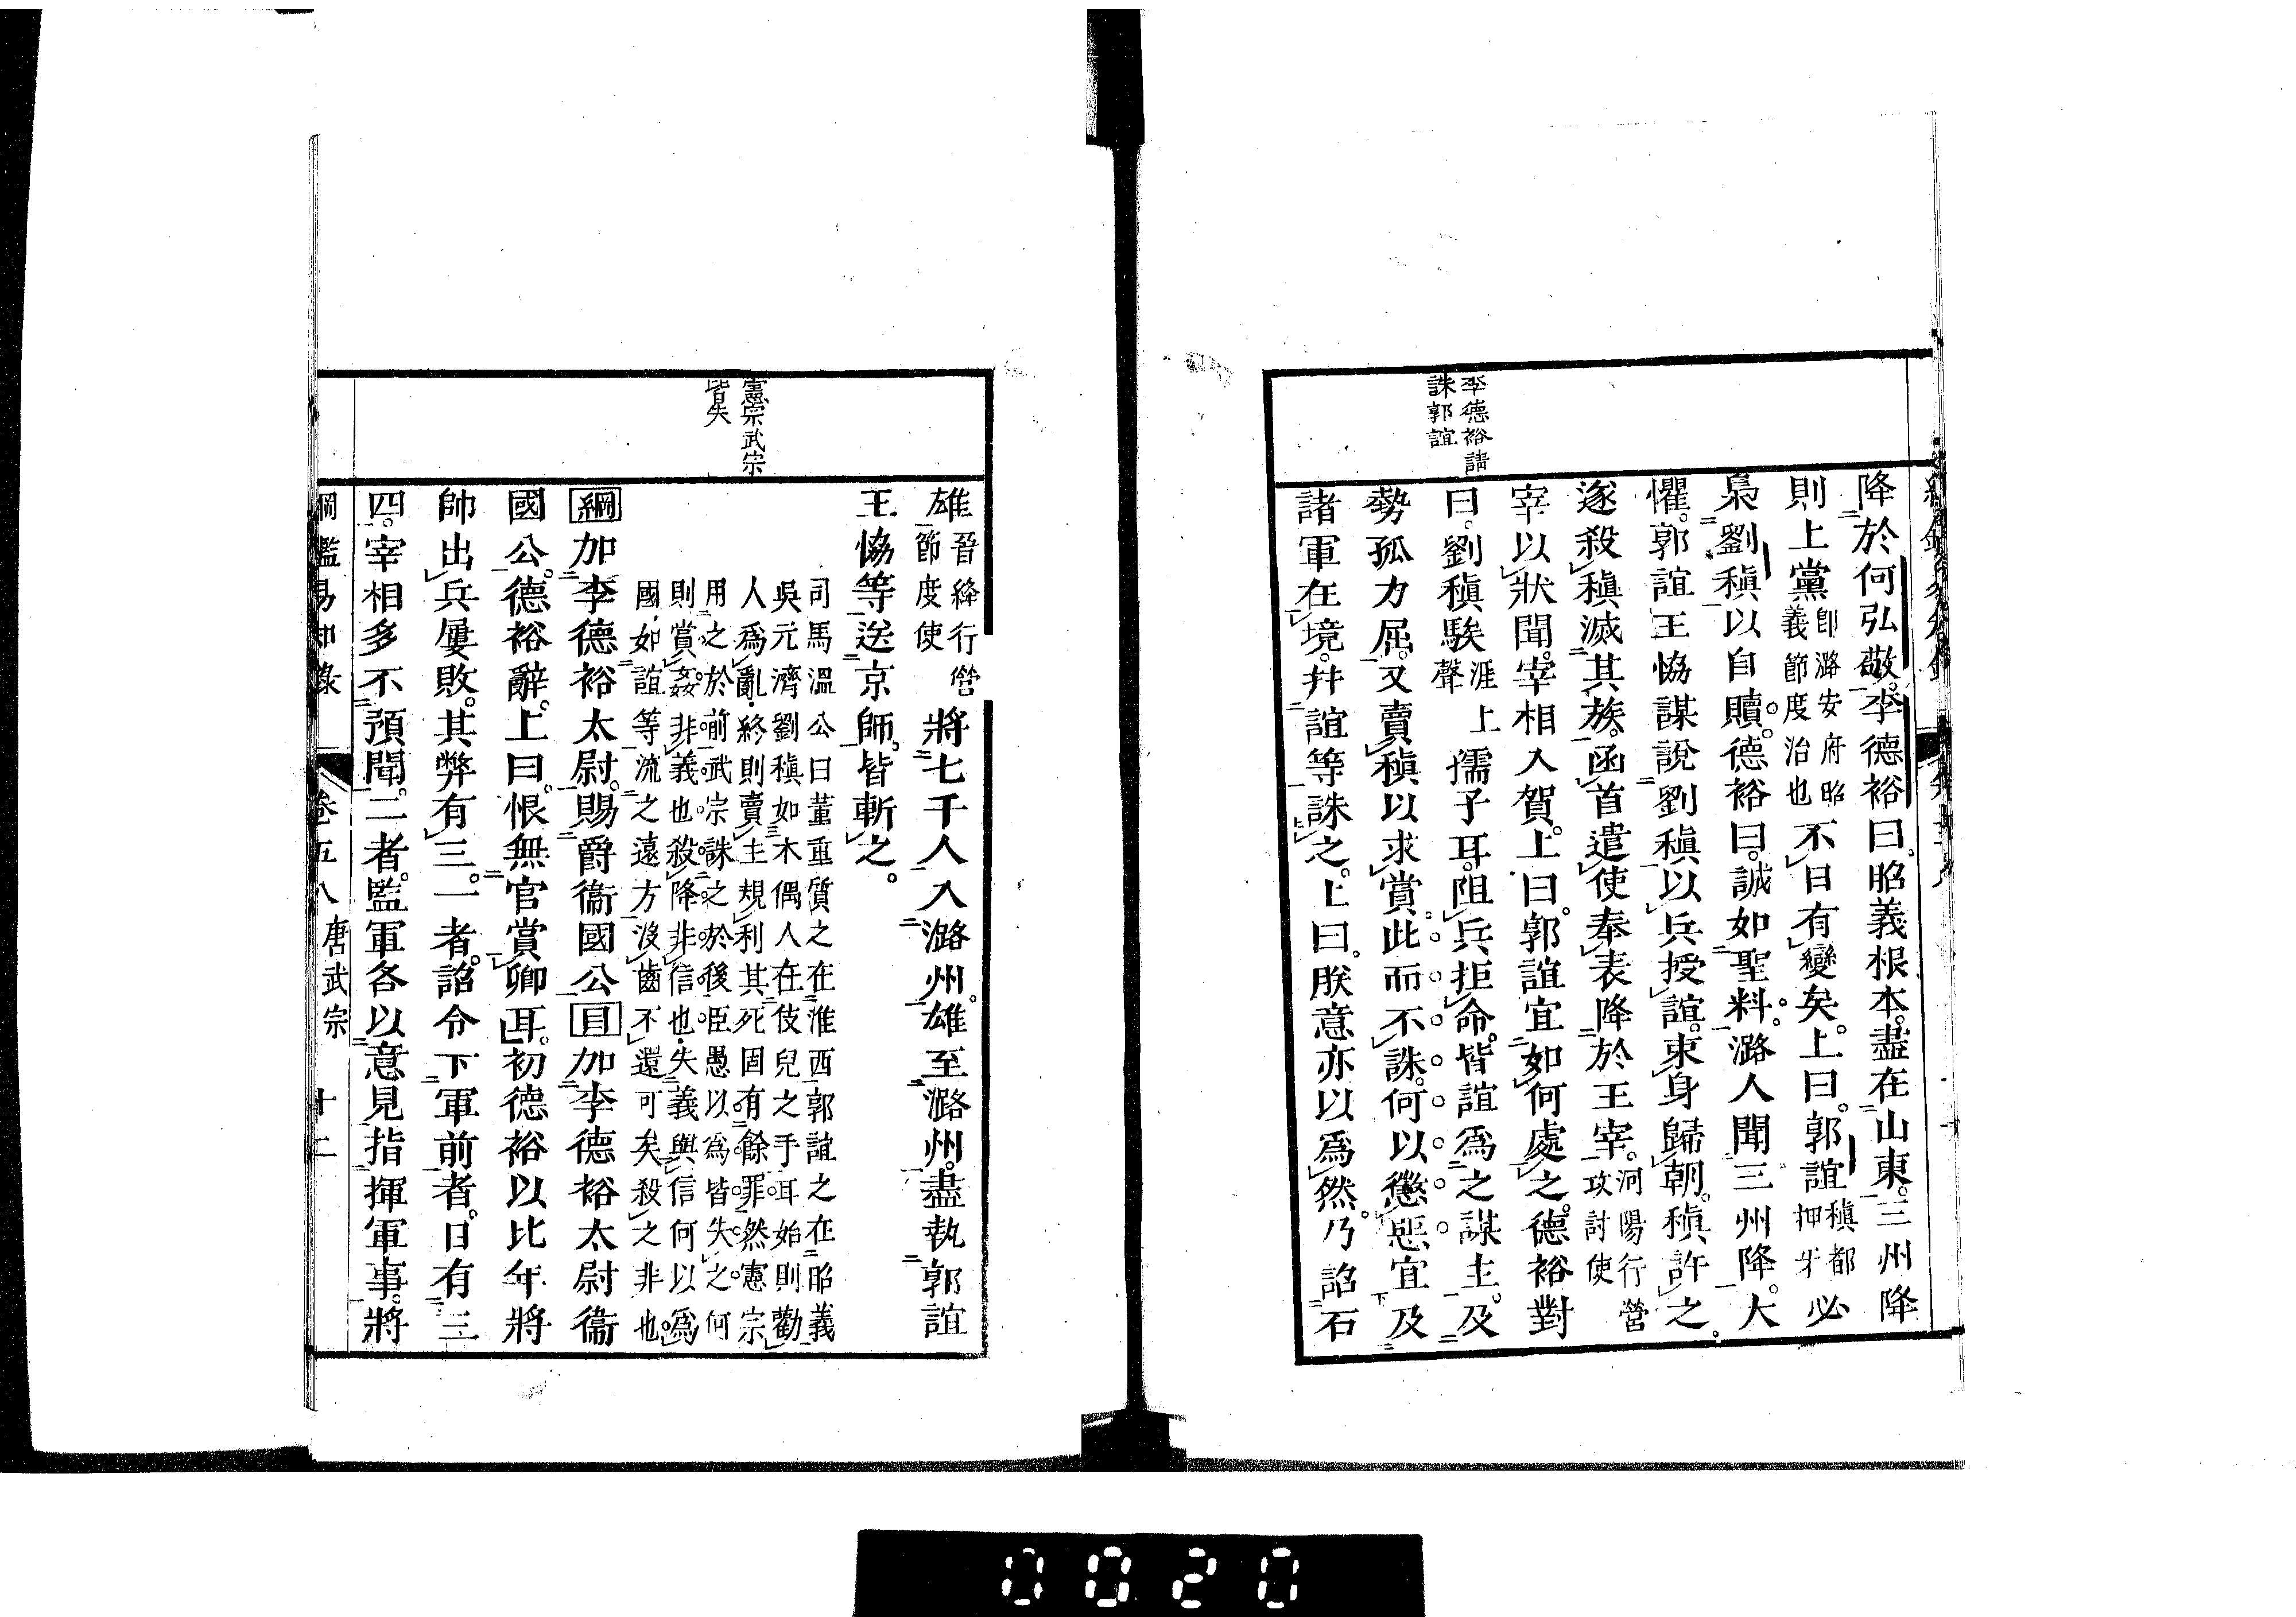 李德裕請
誅郭誼
降於何弘敬。李德裕曰。昭義根本。盡在山東。三州降
則上黨卽潞安府昭義節度治也不日有變矣。上曰。郭誼稹都押牙必
梟劉稹以自贖。德裕曰。誠如聖料。潞人聞三州降。大
懼。郭誼王協謀說劉稹以兵授誼。束身歸朝。稹許之。
遂殺稹滅其族。函首遣使奉表降於王宰。河陽行營攻討使
宰以狀聞。宰相入賀。上曰。郭誼宜如何處之。德裕對
曰。劉稹騃涯上聲孺子耳。阻兵拒命。皆誼爲之謀主。及
勢孤力屈。又賣稹以求賞。此而不誅。何以懲惡。宜及
諸軍在境。幷誼等誅之。上曰。朕意亦以爲然。乃詔石
憲宗武宗
皆失
雄晉絳行營節度使將七千人入潞州。雄至潞州。盡執郭誼
王協等送京師。皆斬之。
司馬溫公曰董重質之在淮西郭誼之在昭義
吳元濟劉稹如木偶人在伎兒之手耳始則勸
人爲亂終則賣主規利其死固有餘罪然憲宗
用之於前武宗誅之於後臣愚以爲皆失之何
則賞姦非義也殺降非信也失義與信何以爲
國如誼等流之遠方沒齒不還可矣殺之非也
綱加李德裕太尉。賜爵衞國公目加李德裕太尉衞
國公。德裕辭。上曰。恨無官賞卿耳。初德裕以比年將
帥出兵屢敗。其弊有三。一者。詔令下軍前者。日有三
四。宰相多不預聞。二者。監軍各以意見指揮軍事。將
綱鑑易知錄 卷五八唐武宗 十二
0020